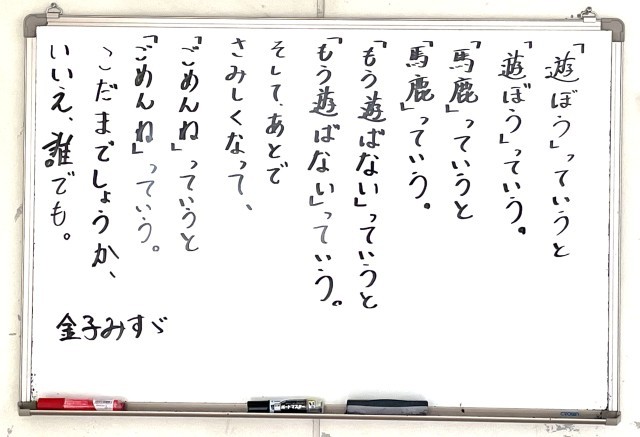 「遊ぼう」っていうと
「遊ぼう」っていう。
「馬鹿」っていうと
「馬鹿」っていう。
「もう遊ばない」っていうと
「もう遊ばない」っていう。
そして、あとで
さみしくなって、
「ごめんね」っていうと
「ごめんね」っていう。
こだまでしょうか、
いいえ、誰でも。
金子みすゞ
ボードマスター